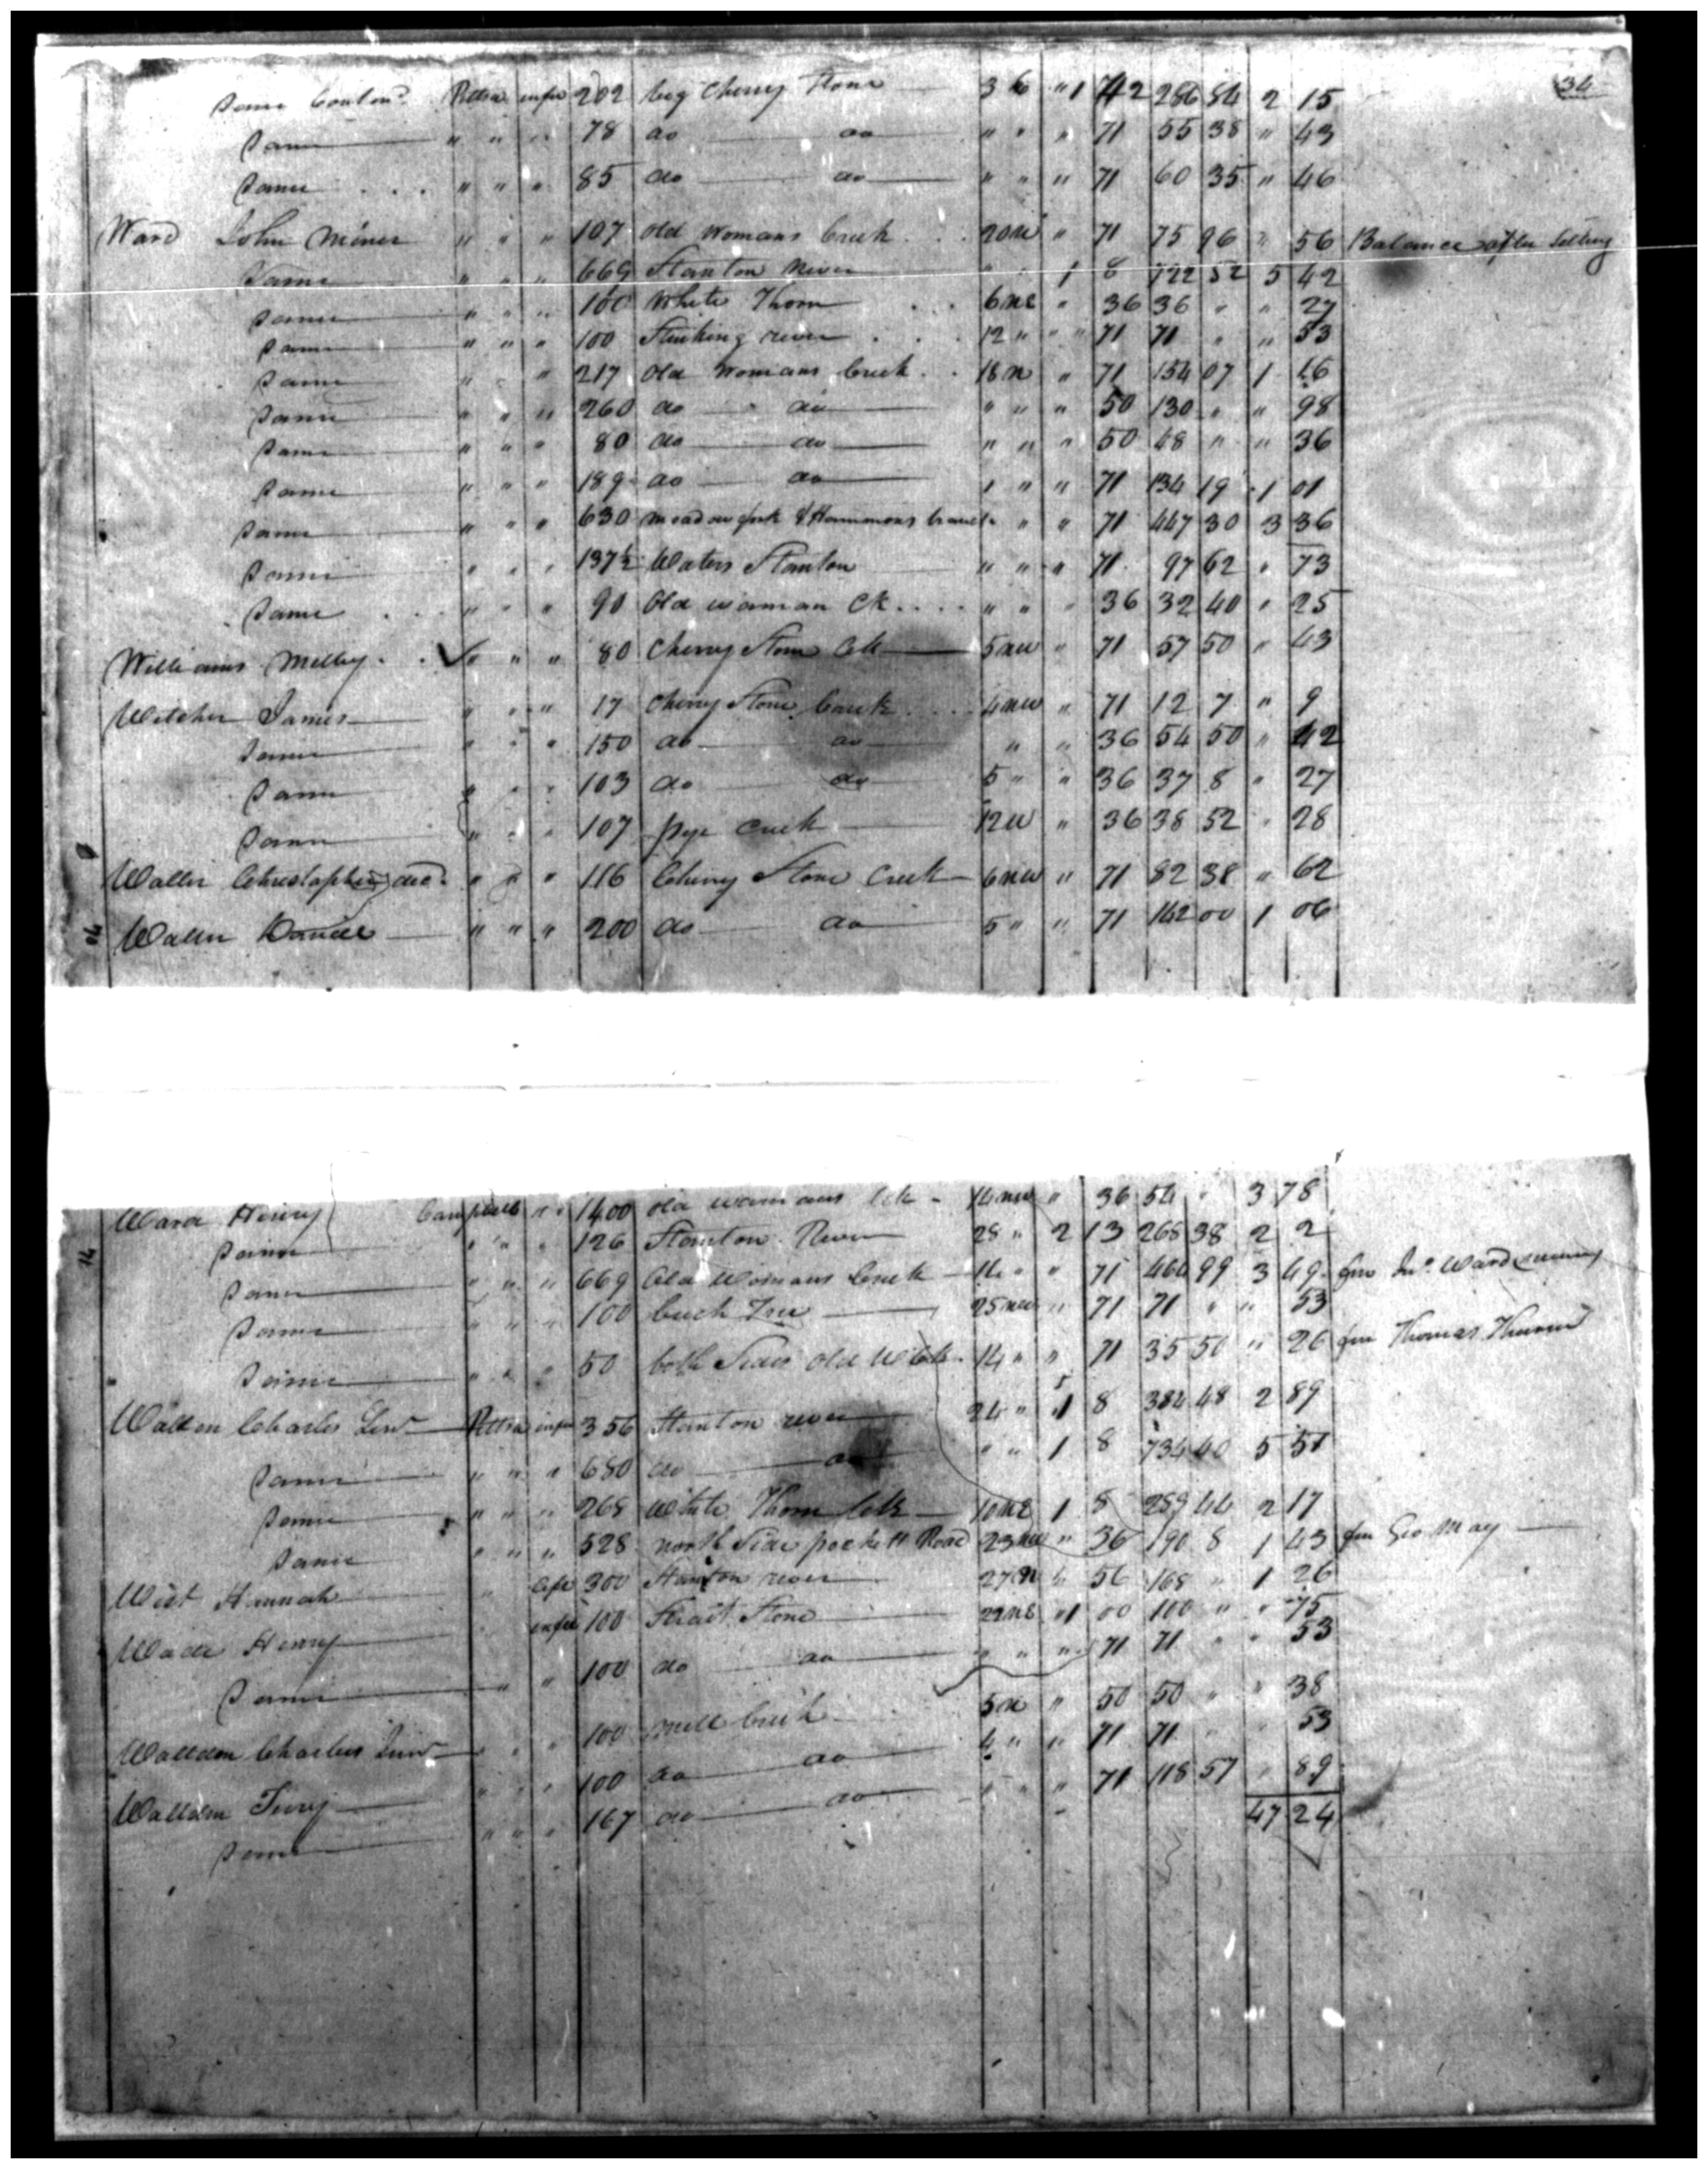 34
Same Contond. Pittsa in fee 202 big Cherry Stone 3 6 " 1 42 286 84 2 15
Same " " " 78 do do " " " 71 55 38 " 43
Same " " " 85 do do " " " 71 60 35 " 46
Ward John Miner " " " 107 old womans Creek 20 N " 71 75 96 " 56 Balance after Selling
Same " " " 669 Stanton River " " 1 8 722 52 5 42
Same " " " 100 White Thorn 6 NE " 36 36 " " 27
Same " " " 100 Stinking river 12 " " 71 71 " " 53
Same " " " 217 Old Womans Creek 18 N " 71 154 07 1 16
Same " " " 260 do do " " " 50 130 " " 98
Same " " " 80 do do " " " 50 48 " " 36
Same " " " 189 do do " " " 71 134 19 1 01
Same " " " 630 meadow fork & Hammons branch " " " 71 447 30 3 36
Same " " " 137½ Waters Stanton " " " 71 97 62 " 73
Same " " " 90 Old woman Ck " " " 36 32 40 " 25
Williams " " " 80 Cherry Stone Ck 5 NW " 71 57 50 " 43
Witcher James " " " 17 Cherry Stone Creek 4 NW " 71 12 7 " 9
Same " " " 150 do do " " 36 54 50 " 42
Same " " " 103 do do 5 " " 36 37 8 " 27
Same " " " 107 pye Creek 12 W " 36 38 52 " 28
Waller Christopher decd. " " " 116 Cherry Stone Creek 6 NW " 71 82 38 " 62
Waller Daniel " " " 200 do do 5 " " 71 142 00 1 06
Ward Henry Campbell " " 1400 old womans Ck 14 NW " 36 54 " 3 78
Same " " " 126 Stanton River 28 " 2 13 268 38 2 2
Same " " " 669 Old Womans Creek 14 " " 71 464 99 3 49 fm Jno. Ward
Same " " " 100 buck Tree 25 NW " 71 71 " " 53
Same " " " 50 both Sides old W Ck 14 " " 71 35 50 " 26 fm Thomas
Walton Charles Senr Pittsa in fee 356 Stanton river 24 " 1 8 384 48 2 89
Same " " " 680 do do " " 1 8 734 40 5 51
Same " " " 268 White Thorn Ck 10 NE 1 8 289 44 2 17
Same " " " 528 north Side pockett Road 23 NW " 36 190 8 1 43 fm Geo May
West Hannah " life 300 Stanton river 27 N " 56 168 " 1 26
Wade Henry " in fee 100 Strait Stone 22 NE " 1 00 100 " " 75
Same " " 100 do do " " " 71 71 " " 53
Wallden Charles Junr " " " 100 mill Creek 5 N " 50 50 " " 38
Wallden " " " 100 do do 4 " " 71 71 " " 53
Same " " " 167 do do " " " 71 118 57 " 89
47 24